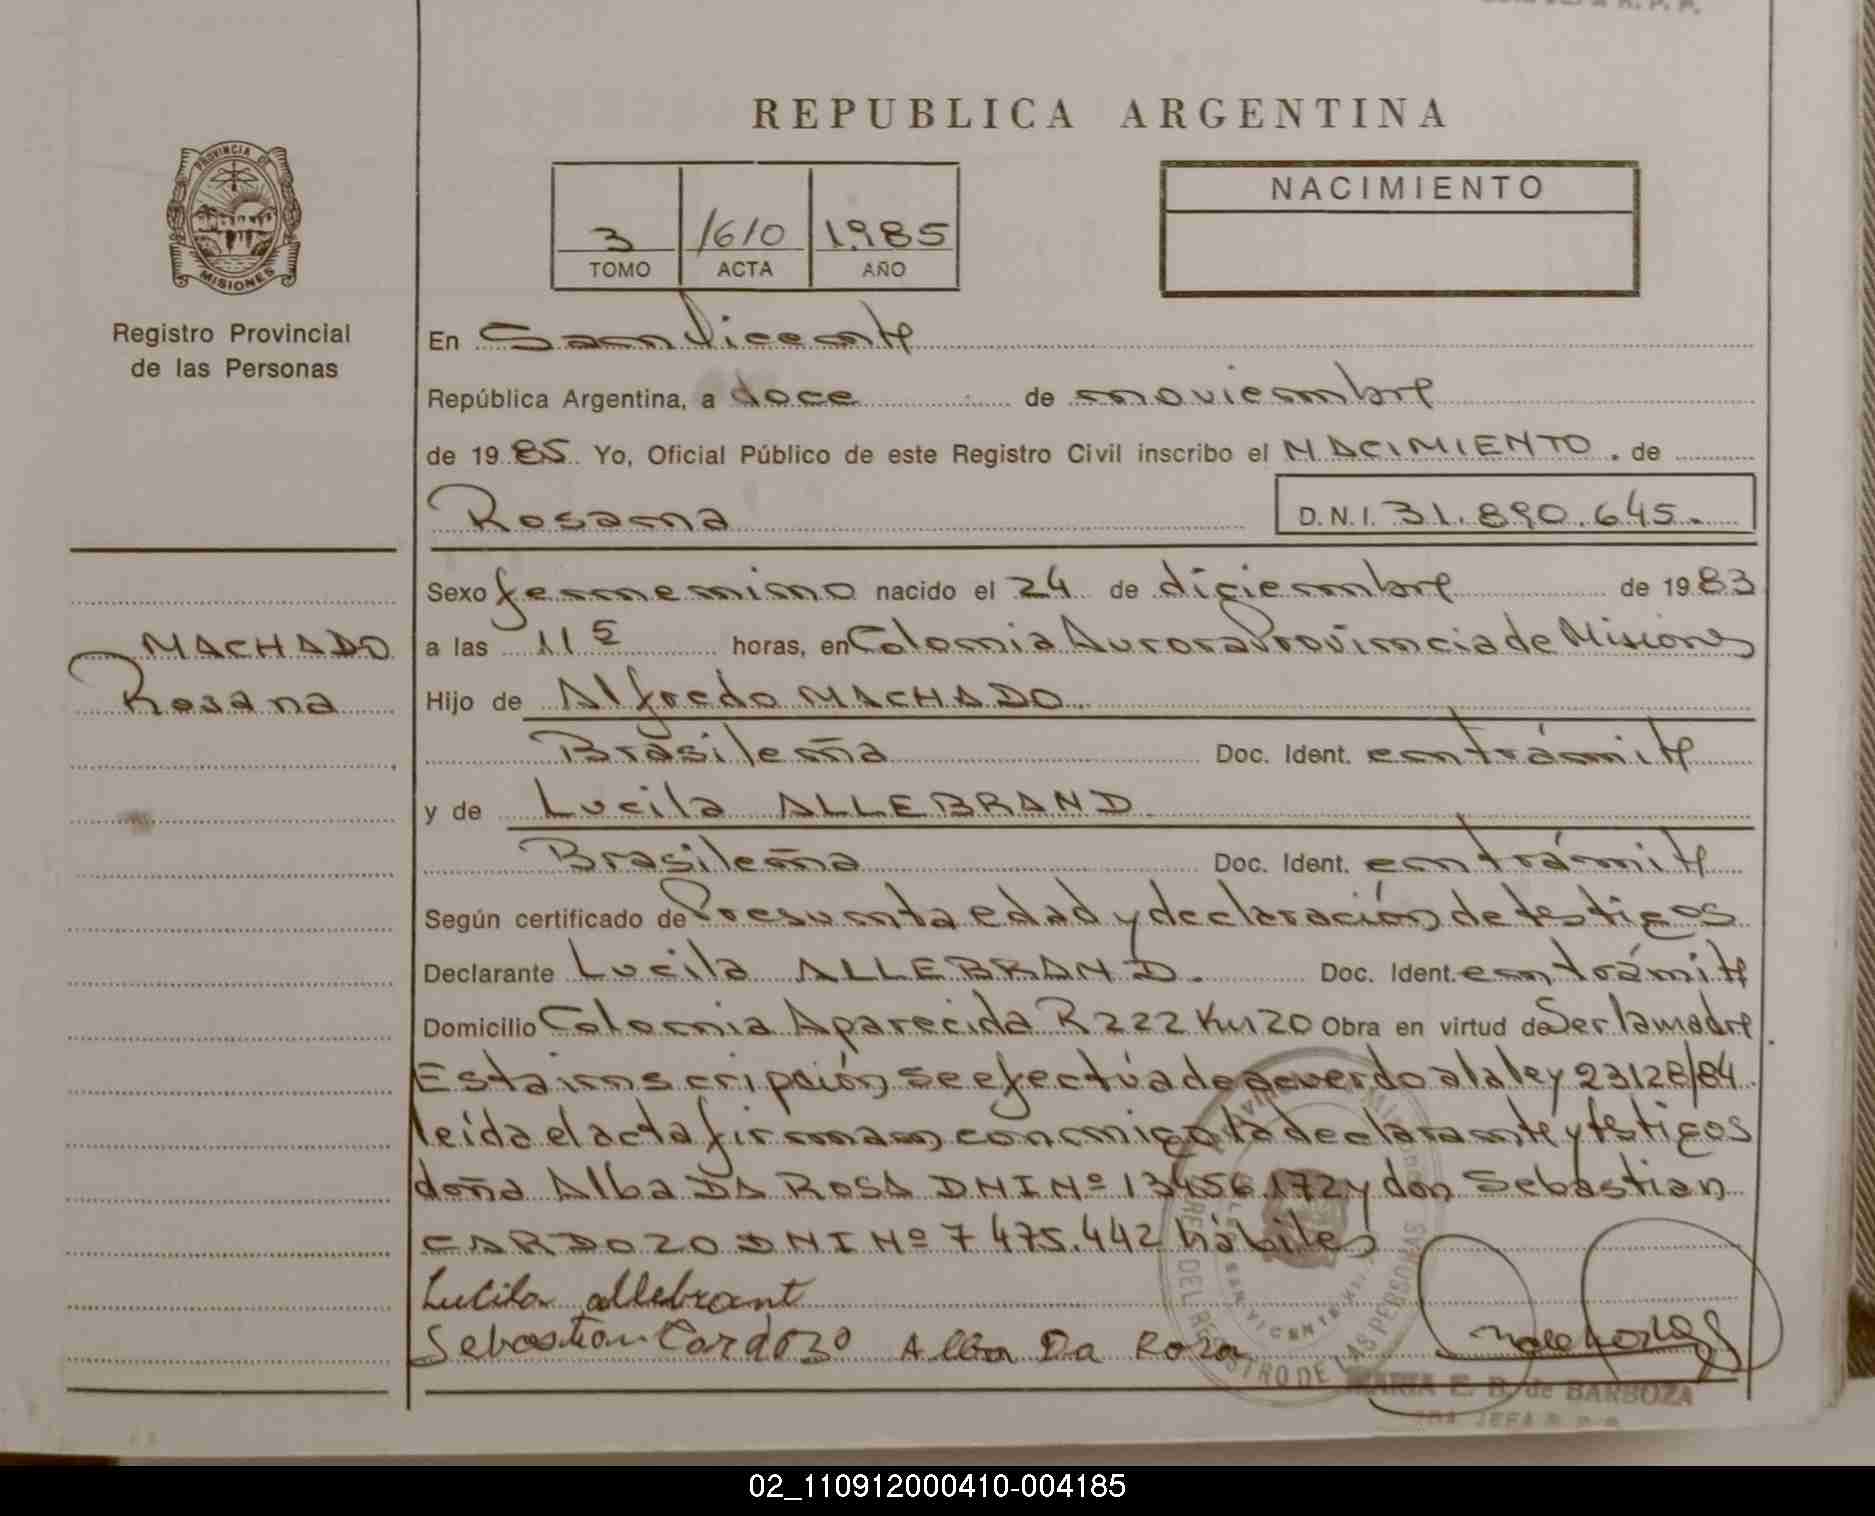 REPUBLICA ARGENTINA
PROVINCIA DE
MISIONES
Registro Provincial
de las Personas
3 1610 1985
TOMO ACTA AÑO
NACIMIENTO
En San Vicente
República Argentina, a doce de noviembre
de 1985 Yo, Oficial Público de este Registro Civil inscribo el NACIMIENTO. de
Rosana D.N.I. 31.890.645.
MACHADO
Rosana
Sexo femenino nacido el 24 de diciembre de 1983
a las 11 horas, en Colonia Aurora Provincia de Misiones
Hijo de Alfredo MACHADO
Brasileña Doc. Ident. en trámite
y de Lucila ALLEBRAND
Brasileña Doc. Ident. en trámite
Según certificado de Presunta edad y declaración de testigos
Declarante Lucila ALLEBRAND. Doc. Ident. en trámite
Domicilio Colonia Aparecida R 222 Km 20 Obra en virtud de Ser la madre
Esta inscripción se efectúa de acuerdo a la ley 23128/84
leída el acta firman conmigo la declarante y testigos
doña Alba DA ROSA DNI Nº 13456.172 y don Sebastian
CARDOZO DNI Nº 7 475.442 hábiles
Lucila allebrant
Sebastian Cardozo Alba Da Rosa
MARIA E. B. de BARBOZA
02_110912000410-004185